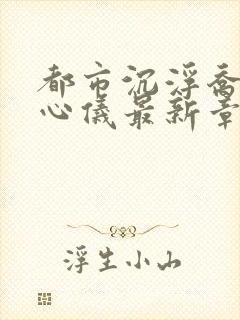 都市沉浮乔
心仪最新章
浮生小山